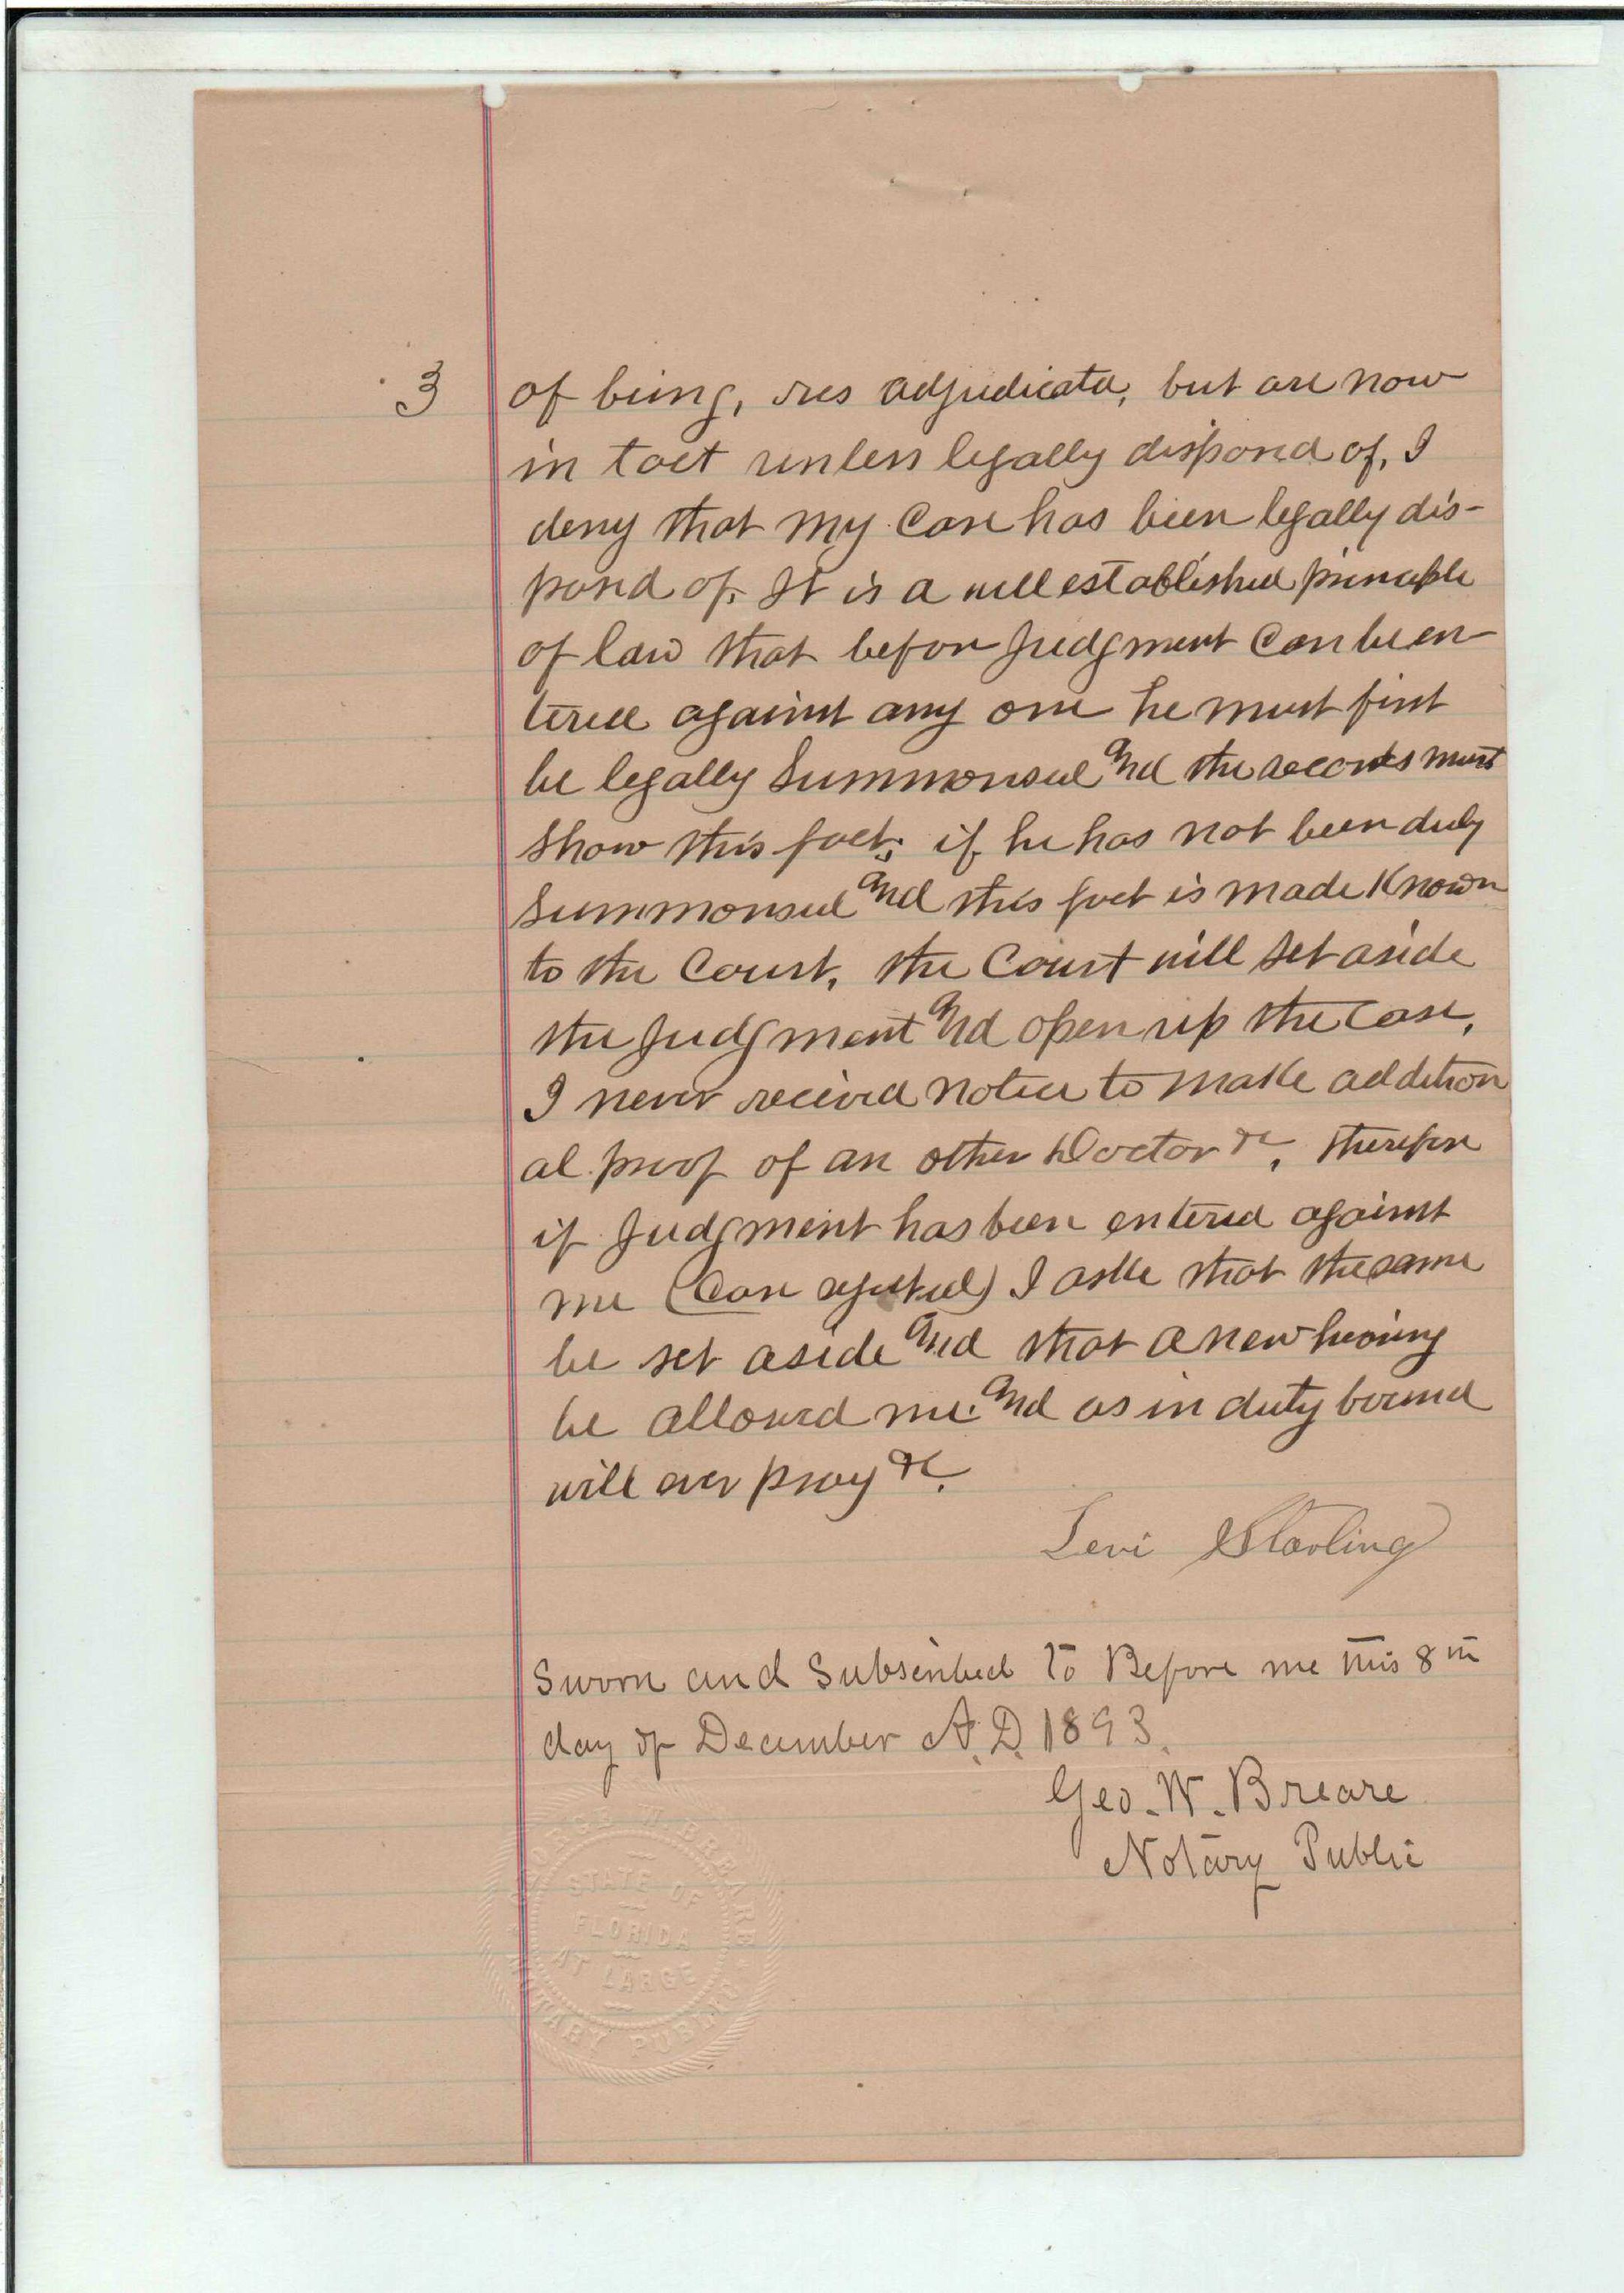 3
of being, res adjudicata, but are now
in tact unless legally disposed of, I
deny that my case has been legally dis-
posed of. It is a well established principle
of law that before Judgment can be en-
tered against any one he must first
be legally Summonsed and the records must
show this fact; if he has not been duly
Summonsed and this fact is made known
to the Court, the Court will set aside
the Judgment and open up the case,
I never received notice to make addition
al proof of an other Doctor &c, therefore
if Judgment has been entered against
me (Case rejected) I aske that the same
be set aside and that a new hearing
be allowed me. and as in duty bound
will ever pray &c.
Levi Starling
Sworn and Subscribed to Before me this 8th
day of December A.D. 1893.
Geo. W. Breare
Notary Public
GEORGE W. BREARE
STATE OF
FLORIDA
AT LARGE
NOTARY PUBLIC